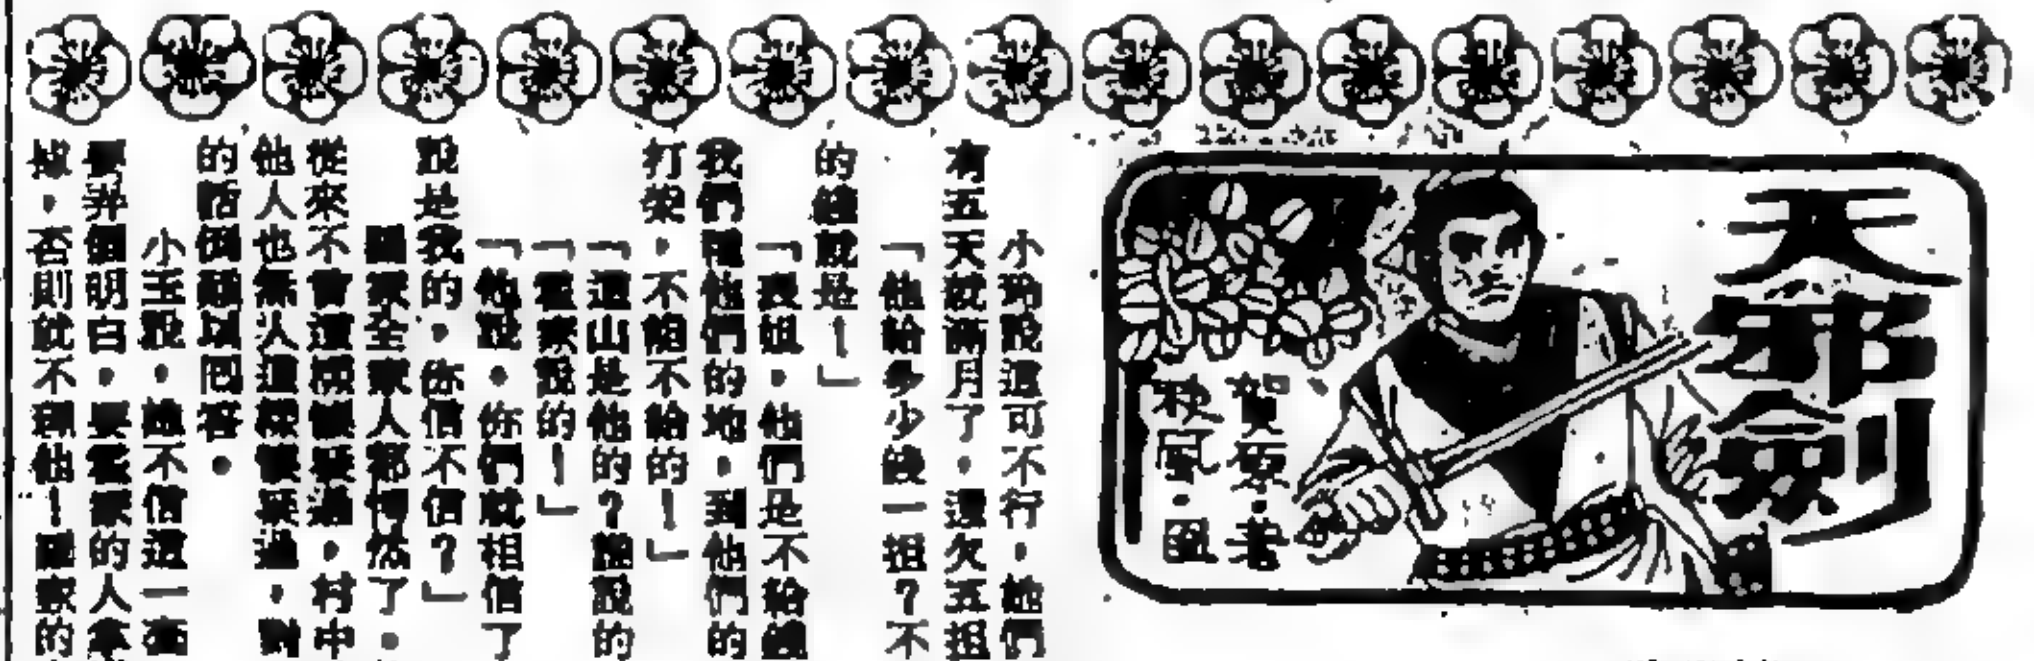 天邪劍
賀原·著
秋風·圖
小玲說這可不行,她們
有五天就滿月了,還欠五担
「他給多少錢一担?不
的錢就是!」
「表姐,他們是不給錢
我們種他們的地,到他們的
打柴,不能不給的!」
「這山是他的?誰說的
「霍家說的!」
「他說,你們就相信了
說是我的,你信不信?」
關家全家人都愕然了。
從來不會這樣懷疑過,村中
他人也無人這樣懷疑過,對
的話倒難以回答。
小玉說,她不信這一套
要弄個明白,要霍家的人拿
據,否則就不理他!關家的